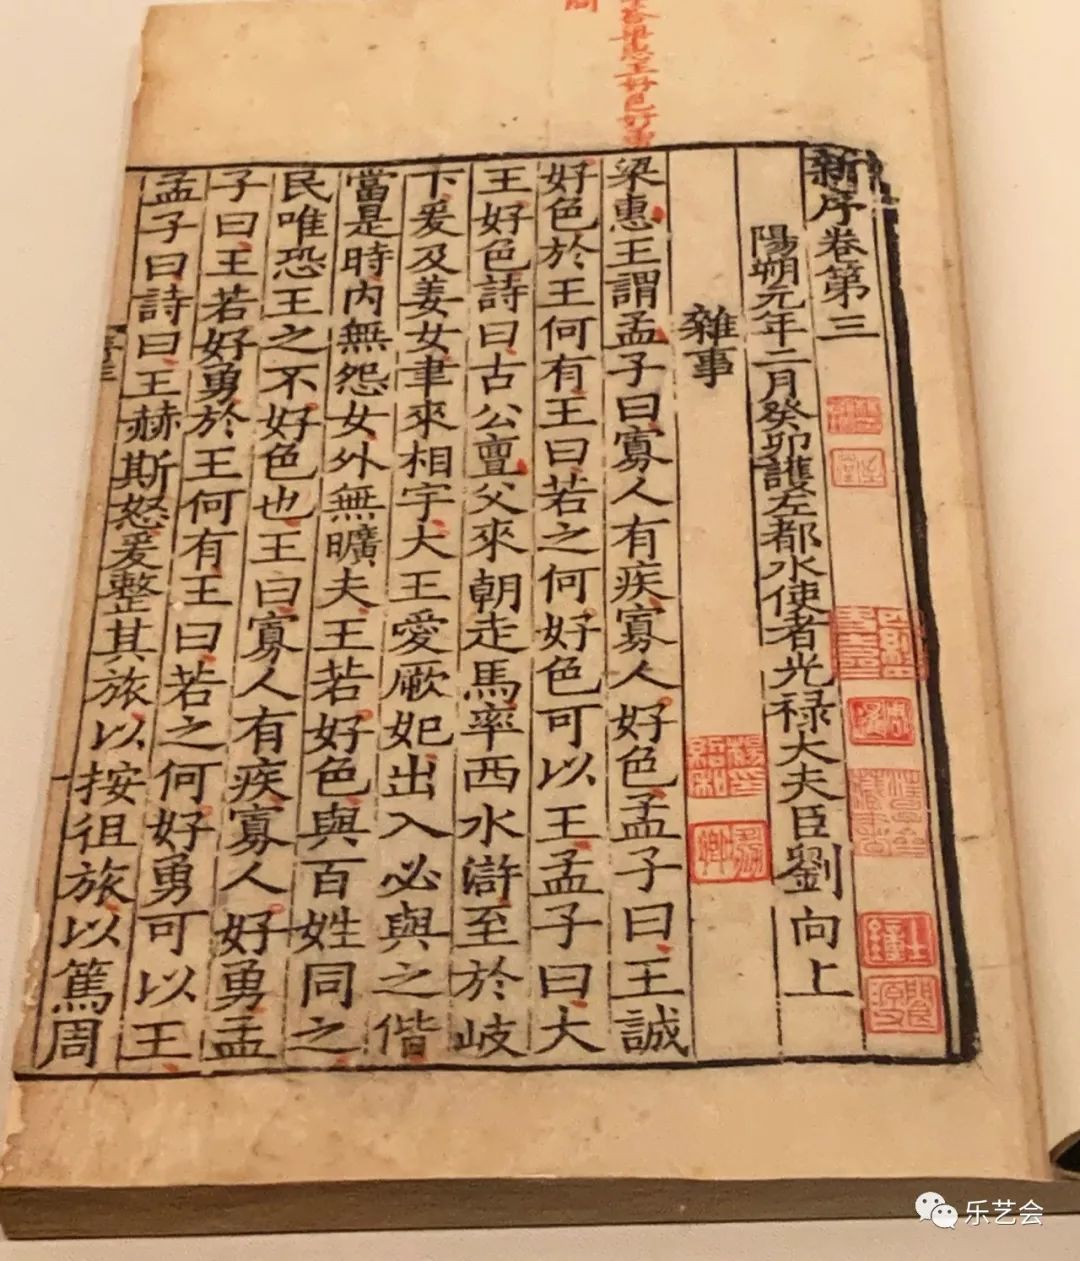 新序卷第三
陽朔元年二月癸卯護左都水使者光禄大夫臣劉向上
雜事
梁惠王謂孟子曰寡人有疾寡人好色孟子曰王誠
好色於王何有王曰若之何好色可以王孟子曰大
王好色詩曰古公亶父來朝走馬率西水滸至於岐
下爰及姜女聿來相宇大王愛厥妃出入必與之偕
當是時内無怨女外無曠夫王若好色與百姓同之
民唯恐王之不好色也王曰寡人有疾寡人好勇孟
子曰王若好勇於王何有王曰若之何好勇可以王
孟子曰詩曰王赫斯怒爰整其旅以按徂旅以篤周
乐艺会